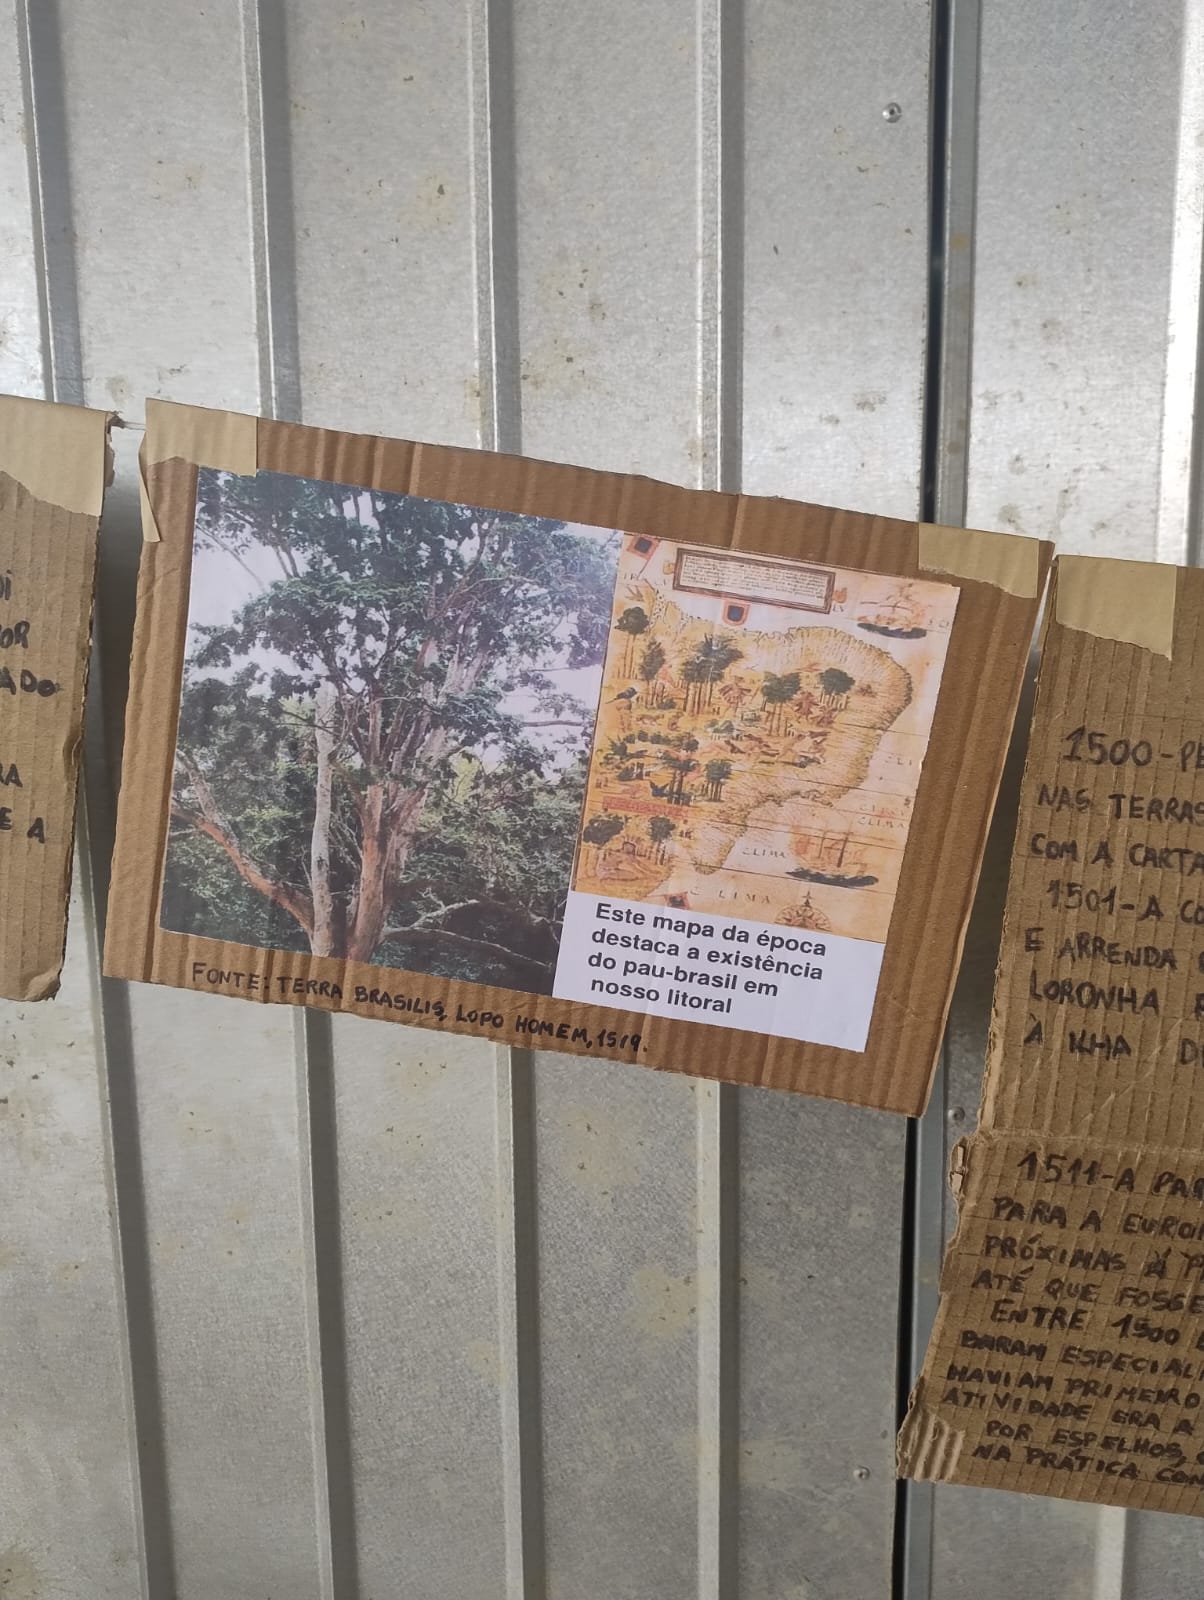 OR
ADO
RA
E A
CLIMA
CLIMA
CLIMA
Este mapa da época
destaca a existência
do pau-brasil em
nosso litoral
FONTE: TERRA BRASILIS, LOPO HOMEM, 1519.
1500-PE
NAS TERRAS
COM A CARTA
1501-A C
E ARRENDA
LORONHA
À ILHA D
1511-A PAR
PARA A EUROP
PRÓXIMAS À P
ATÉ QUE FOSSE
ENTRE 1500
BARAM ESPECIAL
HAVIAM PRIMEIRO
ATIVIDADE ERA A
POR ESPELHOS,
NA PRÁTICA CON